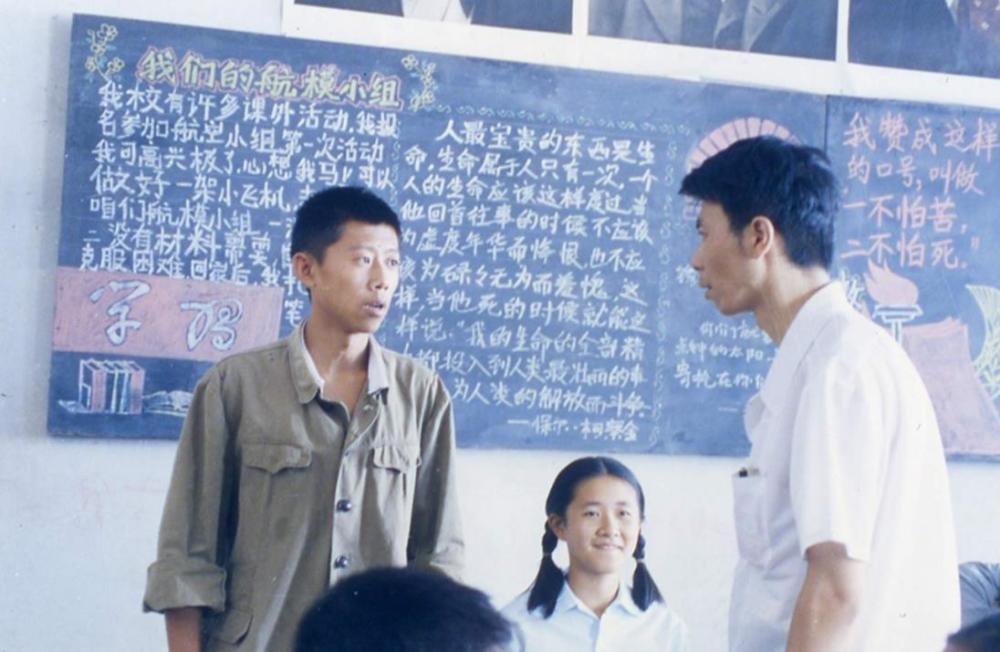 我们的航模小组
我校有许多课外活动.我报
名参加航空小组.第一次活动
我可高兴极了.心想.我马上可以
做好一架小飞机.
咱们航模小组一
二没有材料需要
克服困难回家后.我
笔
学习
人最宝贵的东西是生
命.生命属于人只有一次.一个
人的生命应该这样度过当
他回首往事的时候不应该
为虚度年华而悔恨.也不应
该为碌々无为而羞愧.这
样,当他死的时候就能这
样说:"我的生命的全部精
都投入到人类最壮丽的事
为人类的解放而斗争
——保尔·柯察金
你们
点钟的太阳.
寄托在你
我赞成这样
的口号,叫做
一不怕苦,
二不怕死."